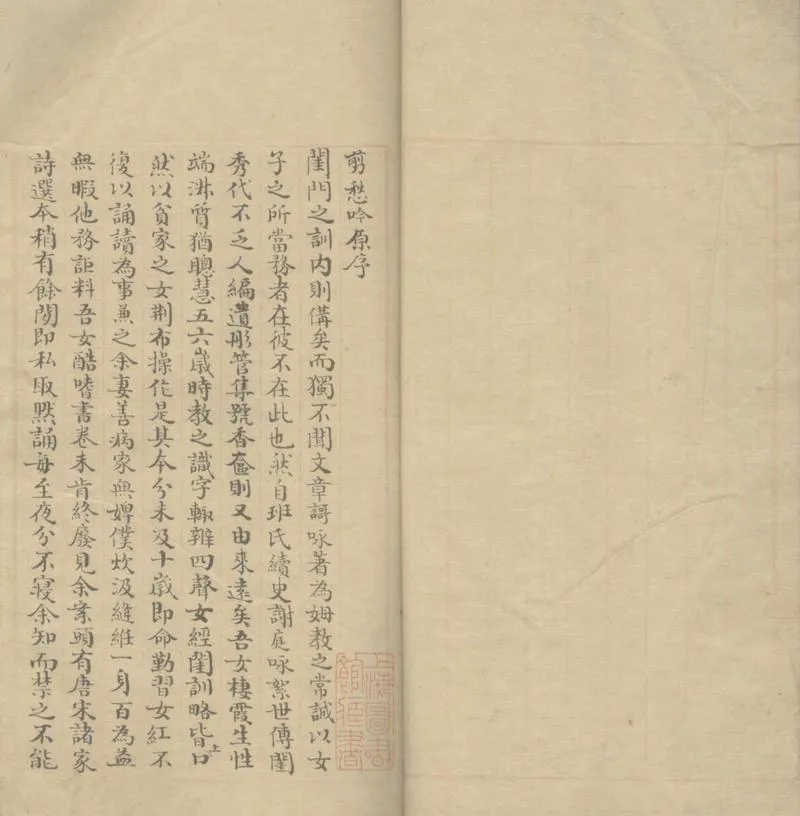 剪愁吟原序
閨門之訓内則備矣而獨不聞文章謌咏著為姆教之常誠以女
子之所當務者在彼不在此也然自班氏續史謝庭咏絮世傳閨
秀代不乏人編遺彤管集號香奩則又由來遠矣吾女棲霞生性
端淑質猶聰慧五六歲時教之識字輙辨四聲女經閨訓略皆上口
然以貧家之女荆布操作是其本分未及十歲即命勤習女紅不
復以誦讀為事兼之余妻善病家無婢僕炊汲縫絍一身百為益
無暇他務詎料吾女酷嗜書卷未肯終廢見余案頭有唐宋諸家
詩選本稍有餘閒即私取默誦每至夜分不寢余知而禁之不能
上海圖書館藏書